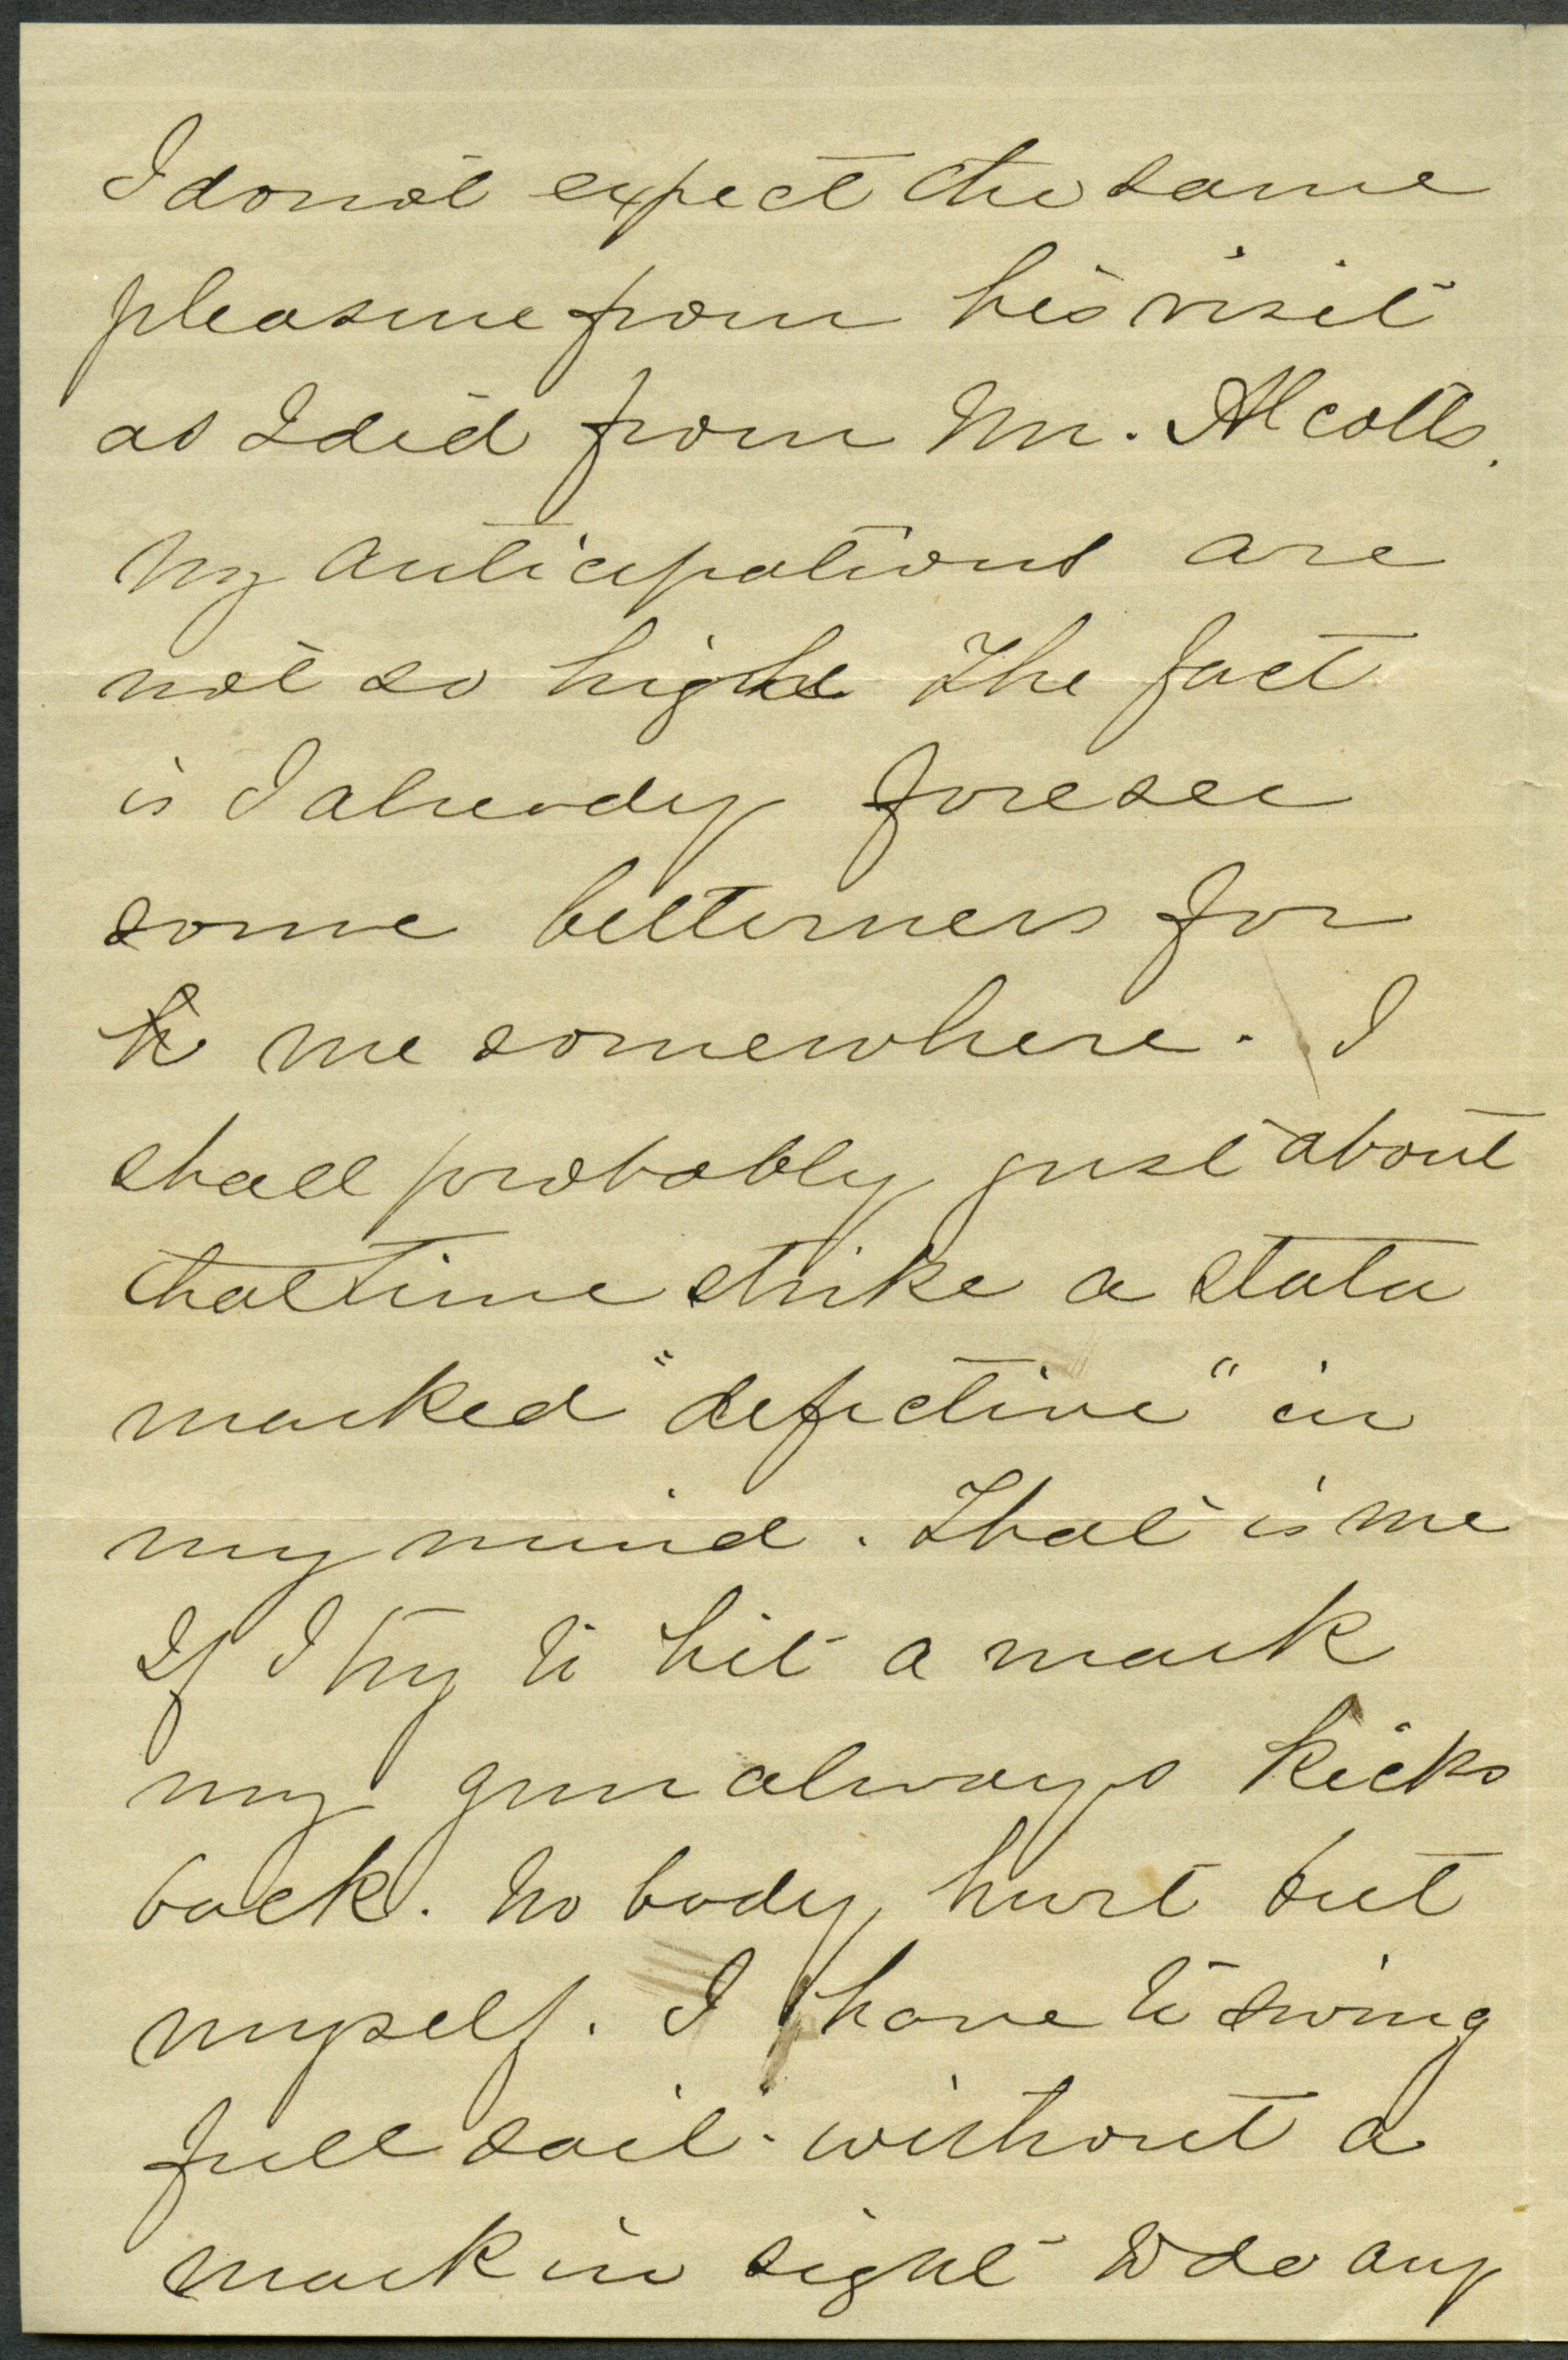 I do not expect the same
pleasure from his visit
as I did from Mr. Alcotts.
My anticipations are
not so high The fact
is I already foresee
some bitterness for
me somewhere. I
shall probably just about
that time strike a strata
marked "defective" in
my mind. That is me
If I try to hit a mark
my gun always kicks
back. No body hurt but
myself. I have to swing
full sail - without a
mark in sight to do any